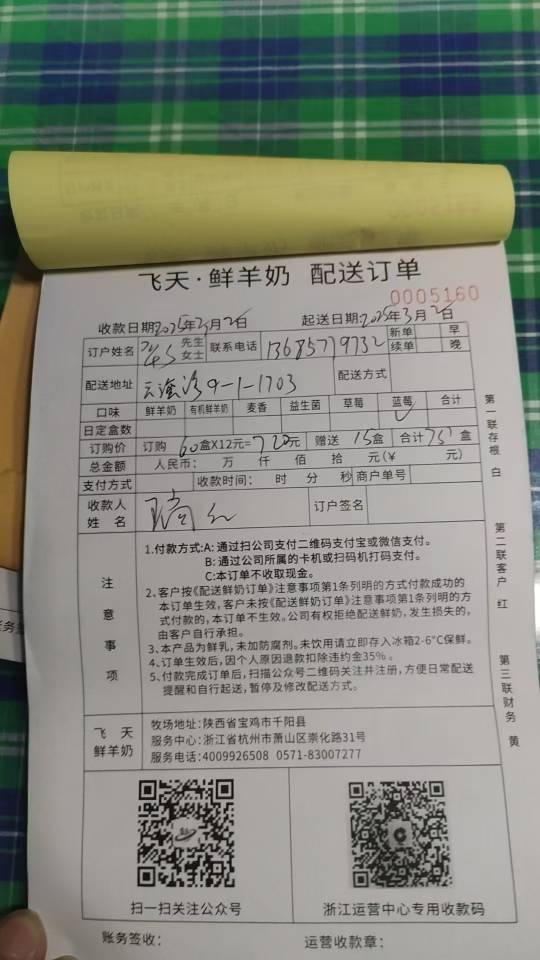 飞天·鲜羊奶 配送订单
0005160
收款日期:2025年3月2日 起送日期:2025年3月2日
订户姓名 先生 女士 联系电话 13685779732 新单 早
续单 晚
配送地址 9-1-1703 配送方式
口味 鲜羊奶 有机鲜羊奶 麦香 益生菌 草莓 蓝莓 合计
日定盒数
订购价 订购 60盒X12元=720元 赠送 15盒 合计75盒
总金额 人民币: 万 仟 佰 拾 元(¥ 元)
支付方式 收款时间: 时 分 秒 商户单号
收款人 姓名 订户签名
注意事项
1.付款方式:A:通过扫公司支付二维码支付宝或微信支付。
B:通过公司所属的卡机或扫码机打码支付。
C:本订单不收取现金。
2、客户按《配送鲜奶订单》注意事项第1条列明的方式付款成功的
本订单生效,客户未按《配送鲜奶订单》注意事项第1条列明的方
式付款的,本订单不生效。公司有权拒绝配送鲜奶,发生损失的,
由客户自行承担。
3、本产品为鲜乳,未加防腐剂。未饮用请立即存入冰箱2-6°C保鲜。
4、订单生效后,因个人原因退款扣除违约金35%。
5、付款完成订单后,扫描公众号二维码关注并注册,方便日常配送
提醒和自行起送,暂停及修改配送方式。
飞天 鲜羊奶
牧场地址:陕西省宝鸡市千阳县
服务中心:浙江省杭州市萧山区崇化路31号
服务电话:4009926508 0571-83007277
扫一扫关注公众号 浙江运营中心专用收款码
账务签收: 运营收款章:
第一联存根 白
第二联客户 红
第三联财务 黄
账务签